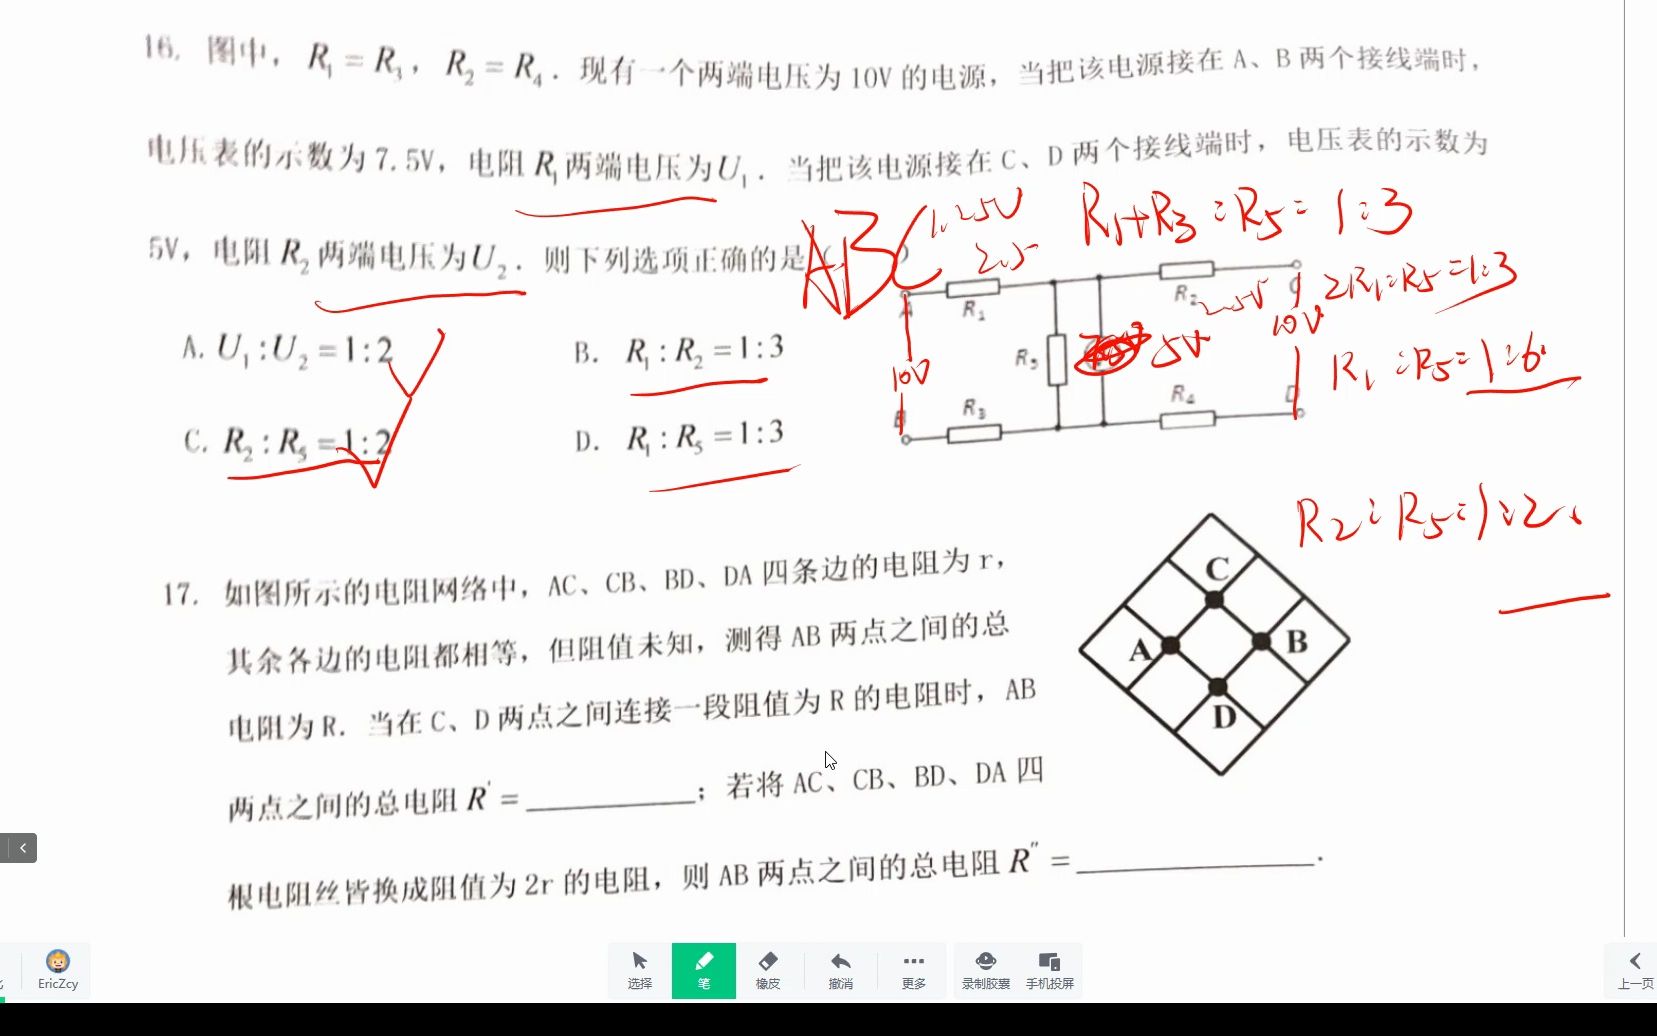 16. 图中，R₁ = R₃，R₂ = R₄．现有一个两端电压为 10V 的电源，当把该电源接在 A、B 两个接线端时，
电压表的示数为 7.5V，电阻 R₁ 两端电压为 U₁．当把该电源接在 C、D 两个接线端时，电压表的示数为
5V，电阻 R₂ 两端电压为 U₂．则下列选项正确的是（ ABC ）
1.25V
2.5
R1+R3:R5=1:3
2R1:R5=1:3
R1:R5=1:6
R2:R5=1:2
A. U₁:U₂=1:2
B. R₁:R₂=1:3
C. R₂:R₅=1:2
D. R₁:R₅=1:3
A R₁ R₂ C
2.5V
10V
R₅ 5V
10V
B R₃ R₄ D
17. 如图所示的电阻网络中，AC、CB、BD、DA 四条边的电阻为 r，
其余各边的电阻都相等，但阻值未知，测得 AB 两点之间的总
电阻为 R．当在 C、D 两点之间连接一段阻值为 R 的电阻时，AB
两点之间的总电阻 R' = ；若将 AC、CB、BD、DA 四
根电阻丝皆换成阻值为 2r 的电阻，则 AB 两点之间的总电阻 R" = ．
C
A B
D
EricZcy
选择 笔 橡皮 撤消 更多 录制胶囊 手机投屏
上一页